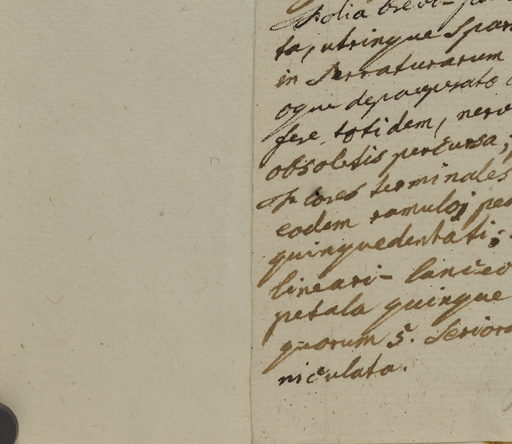 Folia brevi-
ta, utrinque spar
in serraturarum
oque depauperato
fere totidem, nerv
obsoletis percursa,
Flores terminales
eodem ramulo, pe
quinquedentati;
lineari-lanceo
petala quinque
quorum 5. seriora
niculata.